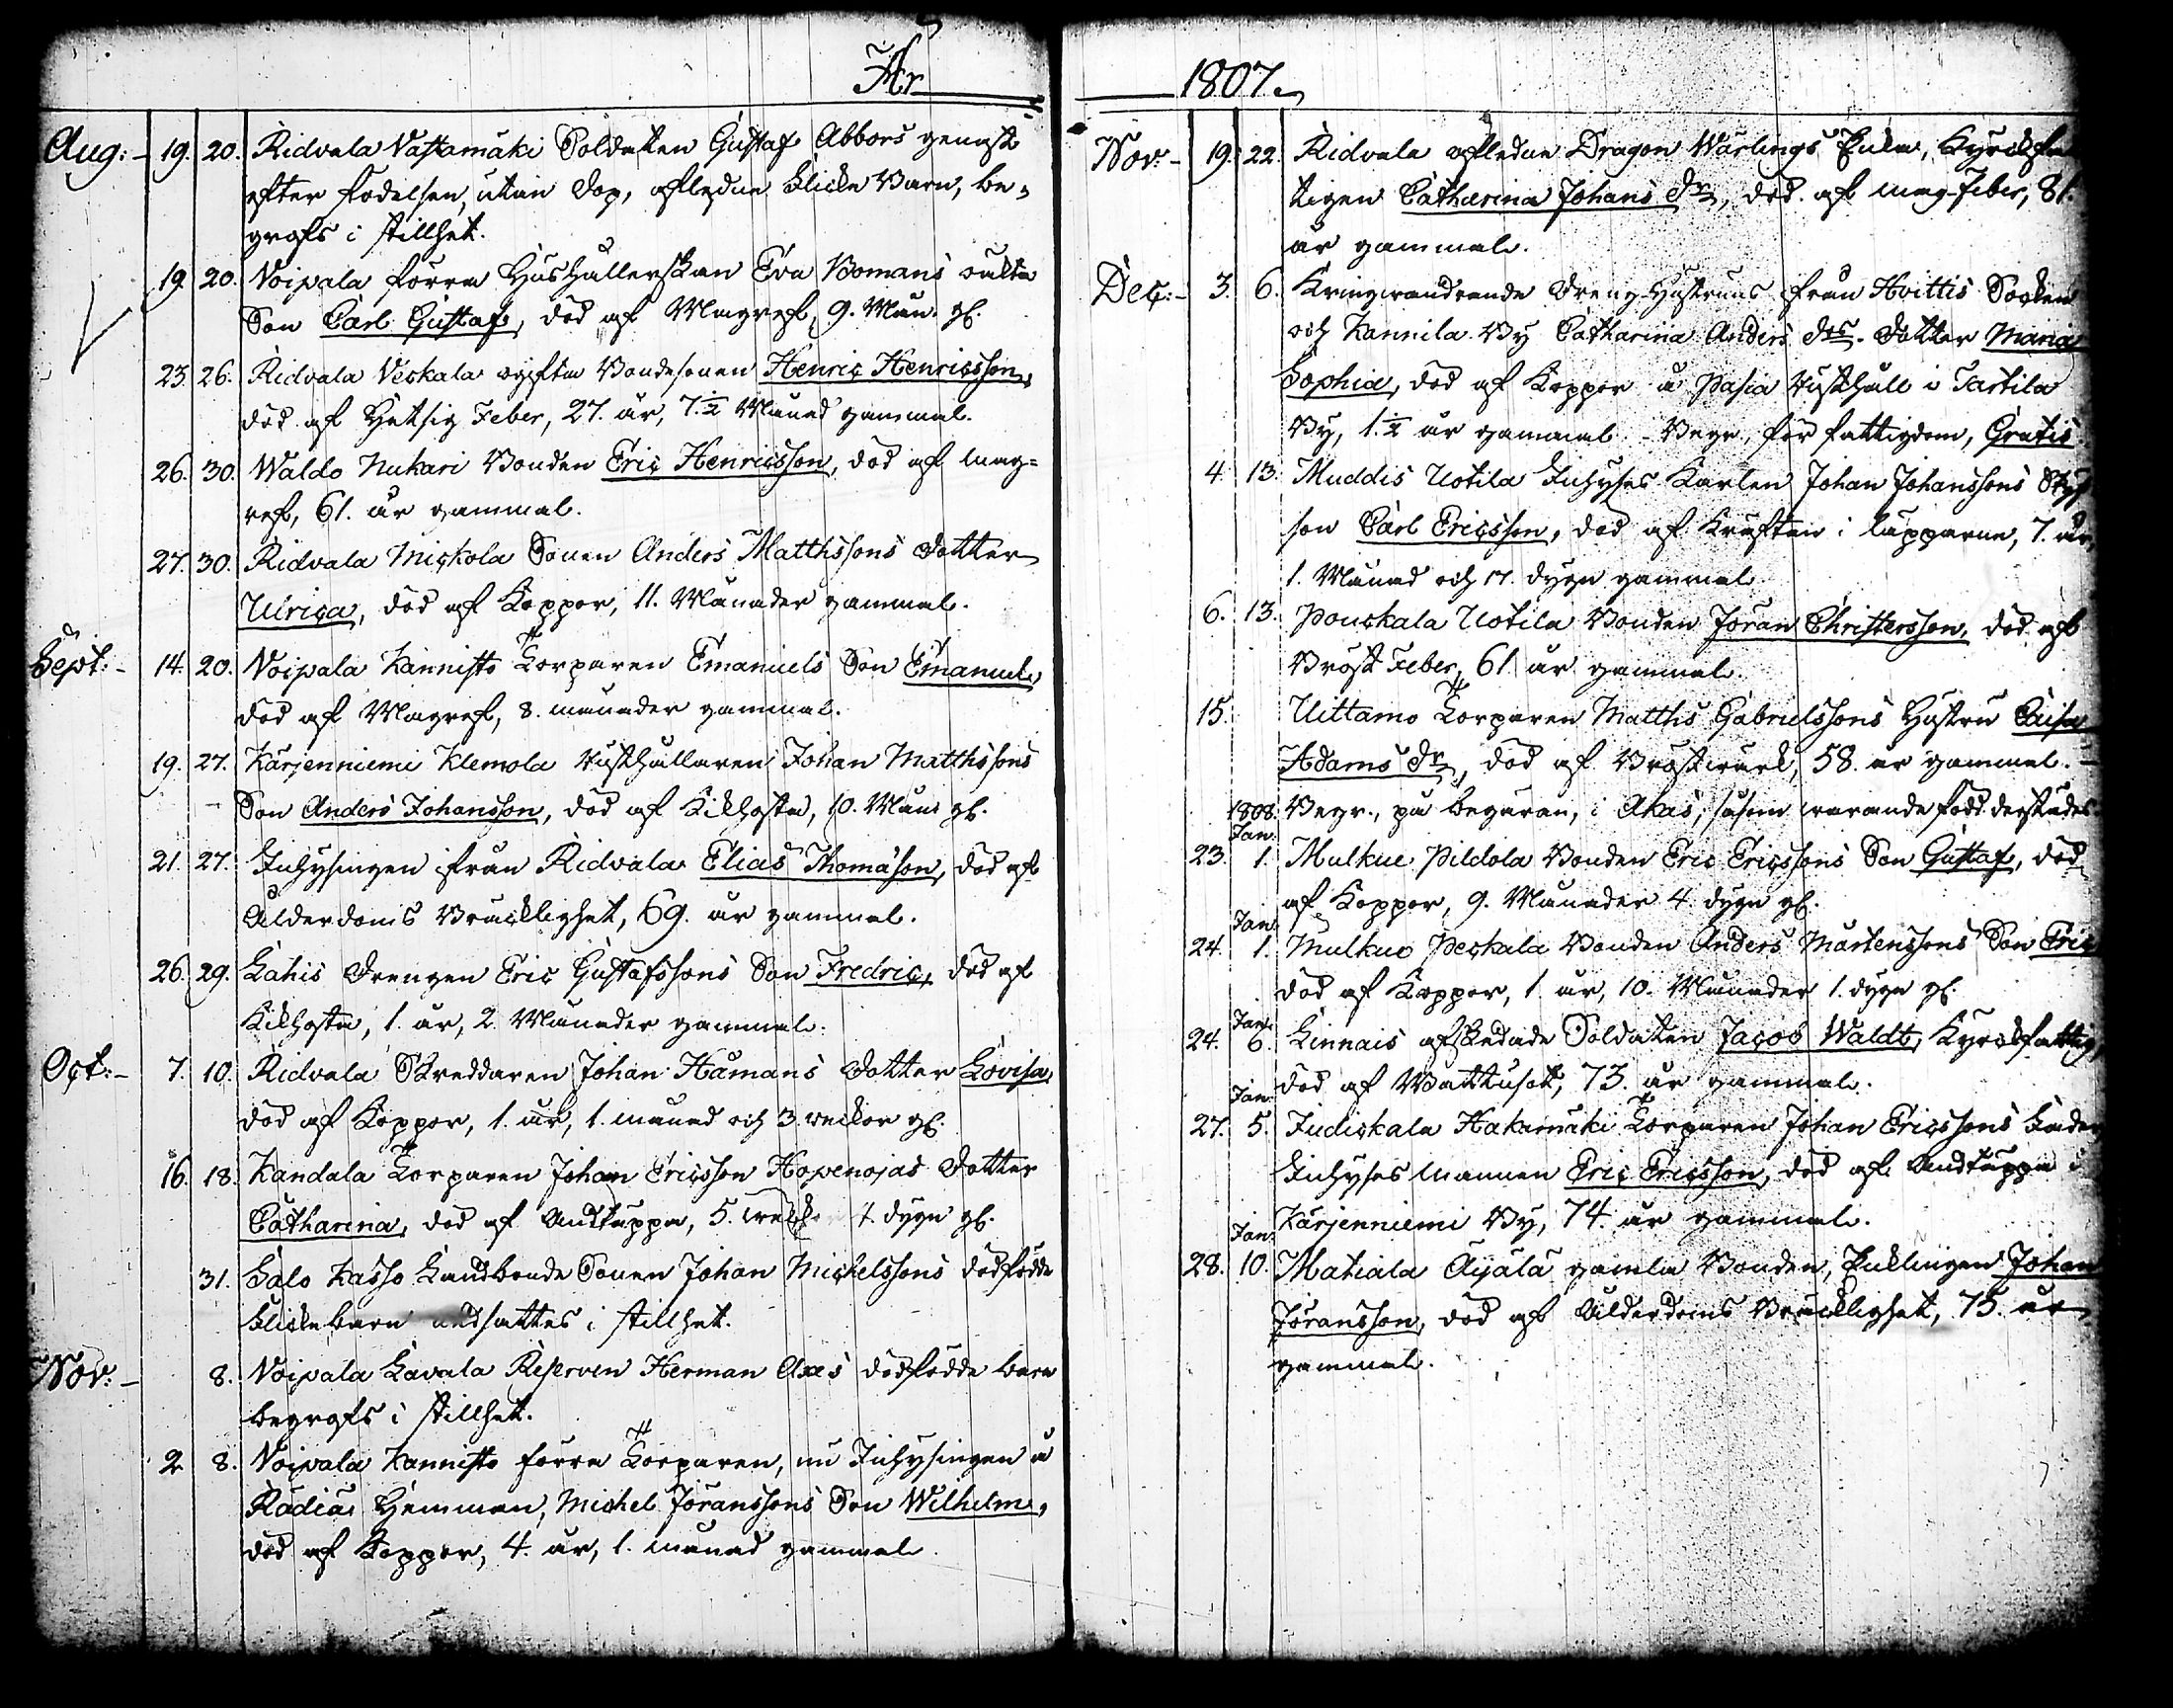 År
Aug:- 19. 20. Ridvala Vastamäki Soldaten Gustaf Abbors genast
efter födelsen, utan dop, aflidne Flicke Barn, be-
grofs i stillhet.
19. 20. Voipala förra Hushållerskan Eva Bomans oäkta
Son Carl Gustaf, död af Magref, 9. Mån. gl.
23. 26. Ridvala Veskala ogifta Bondesonen Henric Henricsson,
död af Hetsig Feber, 27. år, 7.½ Månad gammal.
26. 30. Waldo Nukari Bonden Eric Henricsson, död af mag-
ref, 61. år gammal.
27. 30. Ridvala Mickola Sonen Anders Matthssons dotter
Ulrica, död af Koppor, 11. Månader gammal.
Sept:- 14. 20. Voipala Kannisto Torparen Emanuels Son Emanuel,
död af Magref, 8. månader gammal.
19. 27. Kärjenniemi Klemola Rusthållaren Johan Matthssons
Son Anders Johansson, död af Kikhosta, 10. Mån gl.
21. 27. Inhysingen från Ridvala Elias Thomason, död af
Ålderdoms Bräcklighet, 69. år gammal.
26. 29. Lahis drengen Eric Gustafssons Son Fredric, död af
Kikhosta, 1. år, 2. Månader gammal.
Oct:- 7. 10. Ridvala Skreddaren Johan Håmans dotter Lovisa,
död af Koppor, 1. år, 1. månad och 3. veckor gl.
16. 18. Kandala Torparen Johan Ericsson Hopenojas dotter
Catharina, död af Andtäppa, 5. veckor 4. dygn gl.
31. Salo Kasso Landbonde Sonen Johan Michelssons dödfödde
Flickebarn nedsattes i stillhet.
Nov:- 8. Voipala Lavala Reserven Herman Axes dödfödde barn
begrofs i stillhet.
2. 8. Voipala Kannisto förra Torparen, nu Inhysingen å
Rädiä Hemman, Michel Jöranssons Son Wilhelm,
död af Koppor, 4. år, 1. månad gammal.
1807.
Nov:- 19. 22. Ridvala aflidne Dragon Wärlings Enka, Kyrckfat
tigen Catharina Johans dr, död af mag-feber, 81.
år gammal.
Dec:- 3. 6. Kringvandrande dreng-Hustruns från Hvittis Socken
och Kannila By Catharina Anders drs. dotter Maria
Sophia, död af Koppor å Pasia Rusthåll i Tarttila
By, 1.½ år gammal. - Begr. för fattigdom, Gratis
4. 13. Muddis Uotila Inhyses Karlen Johan Johanssons Styf
son Carl Ericsson, död af Kräftan i läpparne, 7. år,
1. Månad och 17. dygn gammal
6. 13. Pouskala Uotila Bonden Jöran Christersson, död af
Bröst Feber, 61 år gammal.
15. Uittamo Torparen Matths Gabrielssons Hustru Caisa
Adams dr, död af Bröstwärk, 58. år gammal. -
1808. Begr., på begäran, i Akas, såsom warande född derstädes
Jan.
23. 1. Mulkue Pildola Bonden Eric Ericssons Son Gustaf, död
af Koppor, 9. Månader 4. dygn gl.
Jan.
24. 1. Mulkue Peskala Bonden Anders Mårtenssons Son Eric
död af Koppor, 1. år, 10. Månader 1. dygn gl.
Jan.
24. 6. Linnais afskedade Soldaten Jacob Waldt, Kyrckfattig,
död af Wattusot, 73. år gammal.
Jan.
27. 5. Judickala Hakamäki Torparen Johan Ericssons Fader
Inhyses mannen Eric Ericsson, död af Andtäppa i
Kärjenniemi By, 74. år gammal.
Jan.
28. 10. Matiala Äijälä gamla Bonden, Enklingen Johan
Jöransson, död af Ålderdoms Bräcklighet, 75. år
gammal.